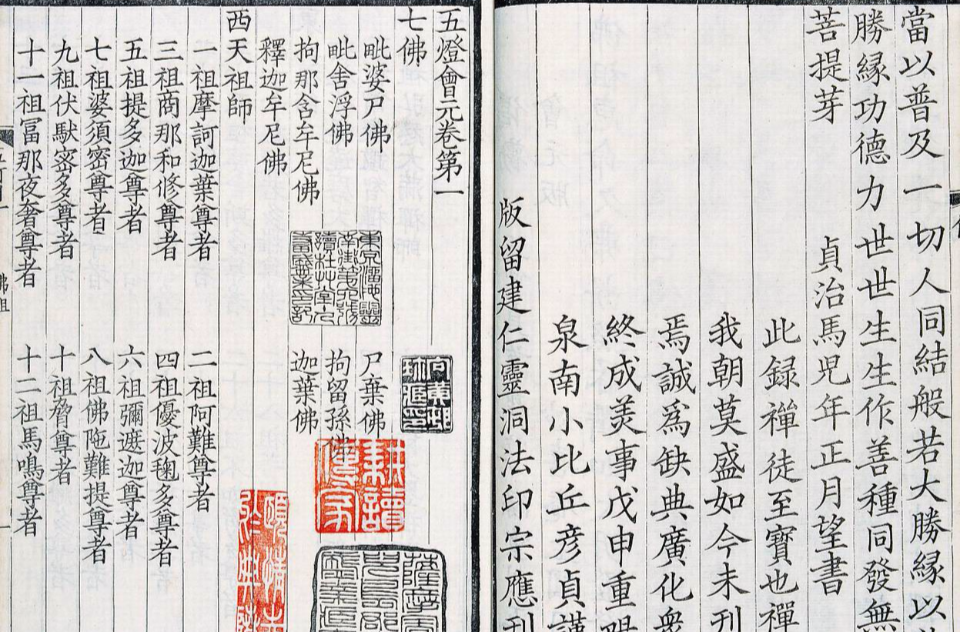 當以普及一切人同結般若大勝緣以
勝緣功德力世世生生作善種同發無
菩提芽 貞治馬兒年正月望書
此録禪徒至寶也禪
我朝莫盛如今未刊
焉誠爲缺典廣化衆
終成美事戊申重
泉南小比丘彦貞謹
版留建仁靈洞法印宗應刊
五燈會元卷第一
七佛
毗婆尸佛 尸棄佛
毗舍浮佛 拘留孫佛
拘那含牟尼佛 迦葉佛
釋迦牟尼佛
西天祖師
一祖摩訶迦葉尊者 二祖阿難尊者
三祖商那和修尊者 四祖優波毱多尊者
五祖提多迦尊者 六祖彌遮迦尊者
七祖婆須密尊者 八祖佛陁難提尊者
九祖伏馱密多尊者 十祖脅尊者
十一祖冨那夜奢尊者 十二祖馬鳴尊者
佛祖
東京溜池靈
南街第六號
讀杜艸堂主
寺田盛業印記
向黃邨
珍藏印
耕讀
傳家